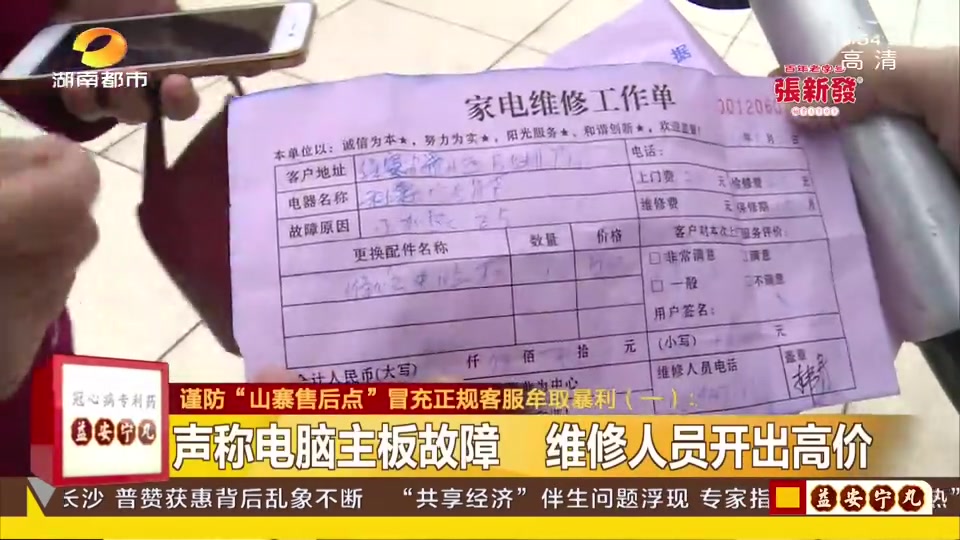 湖南都市
高清
百年老字号
張新發
据
家电维修工作单
本单位以：诚信为本★，努力为实★，阳光服务★、和谐创新★，欢迎监督！
年 月 日
客户地址
电话：
电器名称
上门费 元 检修费
故障原因
维修费 元 保修期 月
更换配件名称 数量 价格
客户对本次上门服务评价：
□非常满意 □满意
□一般 □不满意
用户签名：
合计人民币(大写) 仟 佰 拾 元
(小写) 元
维修人员电话
盖章
冠心病专利药
益安宁丸
谨防“山寨售后点”冒充正规客服牟取暴利（一）：
声称电脑主板故障 维修人员开出高价
长沙 普赞获惠背后乱象不断 “共享经济”伴生问题浮现 专家指
益安宁丸
热”